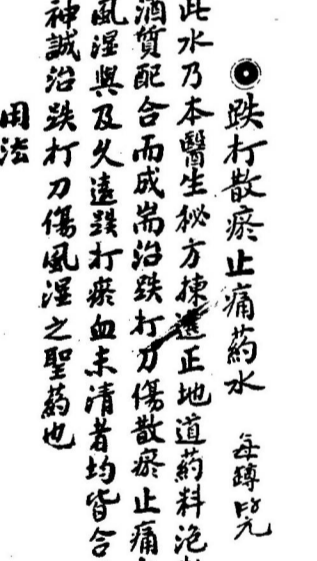 跌打散瘀止痛葯水 每罇
此水乃本醫生秘方揀選正地道葯料泡
酒質配合而成耑治跌打刀傷散瘀止痛
風湿與及久遠跌打瘀血未清者均皆合
神誠治跌打刀傷風湿之聖葯也
用法